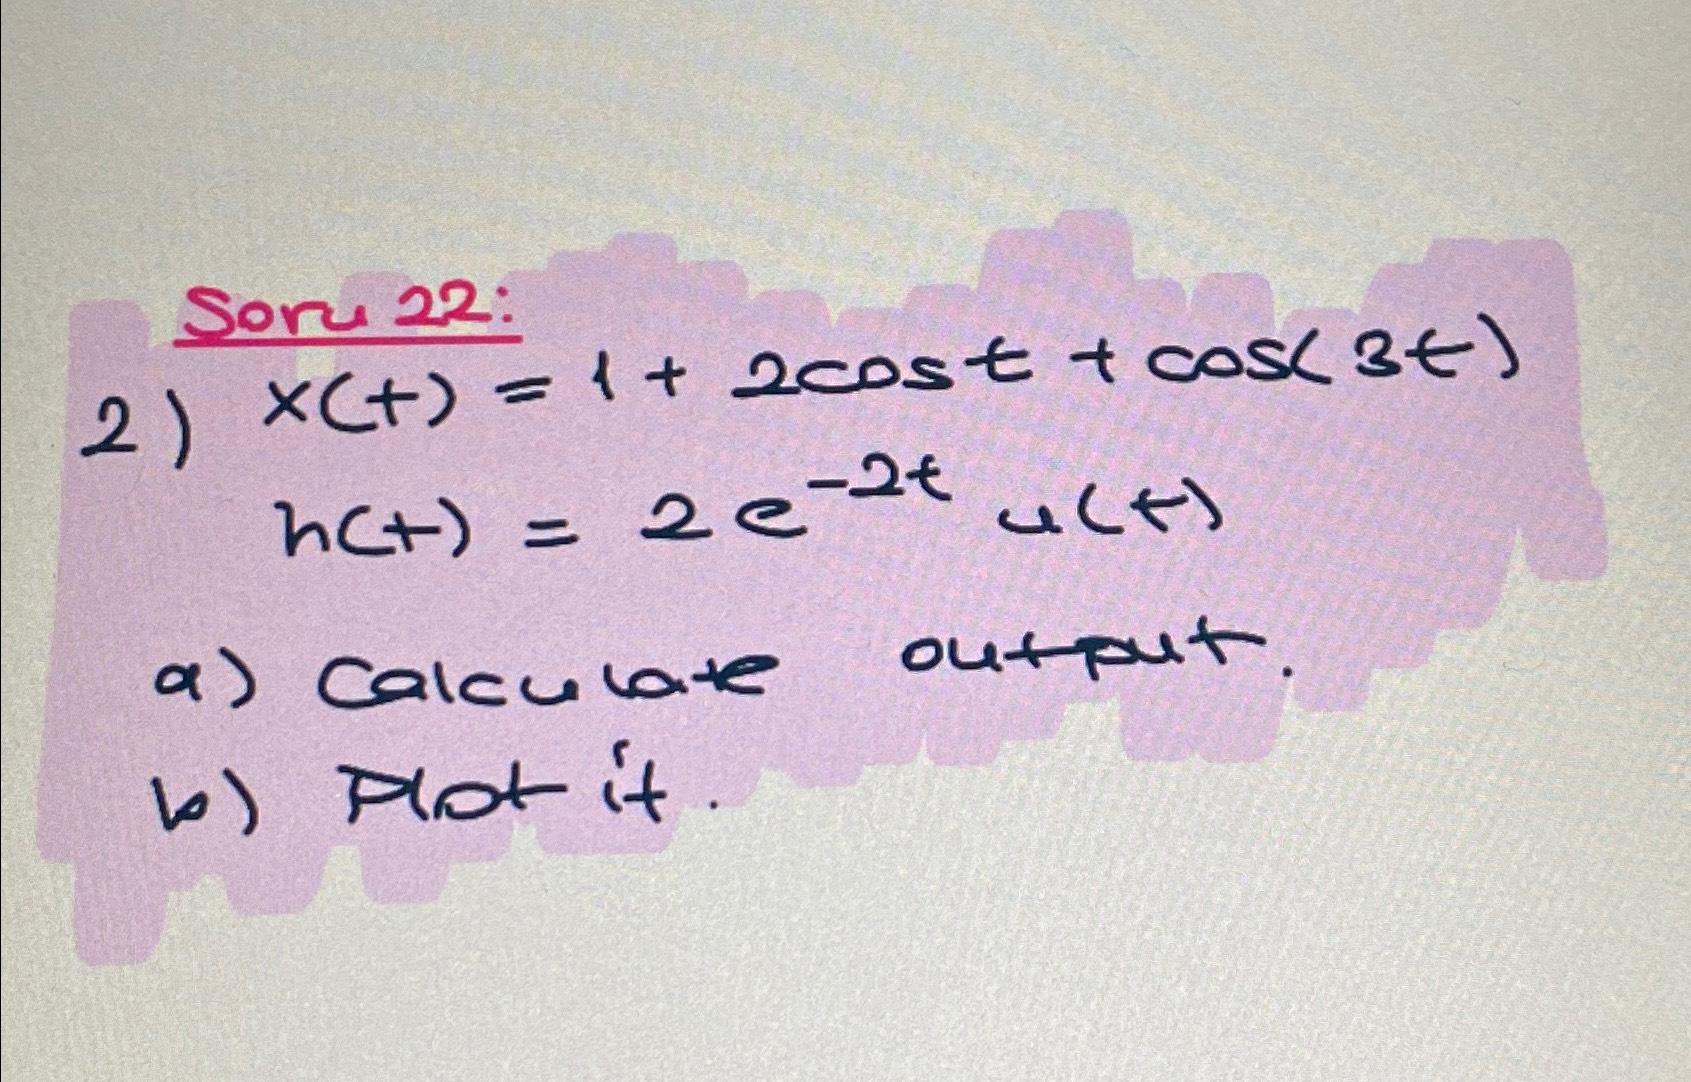 Soru 22:
2) x(t) = 1 + 2cost + cos(3t)
h(t) = 2e^-2t u(t)
a) Calculate output.
b) Plot it.